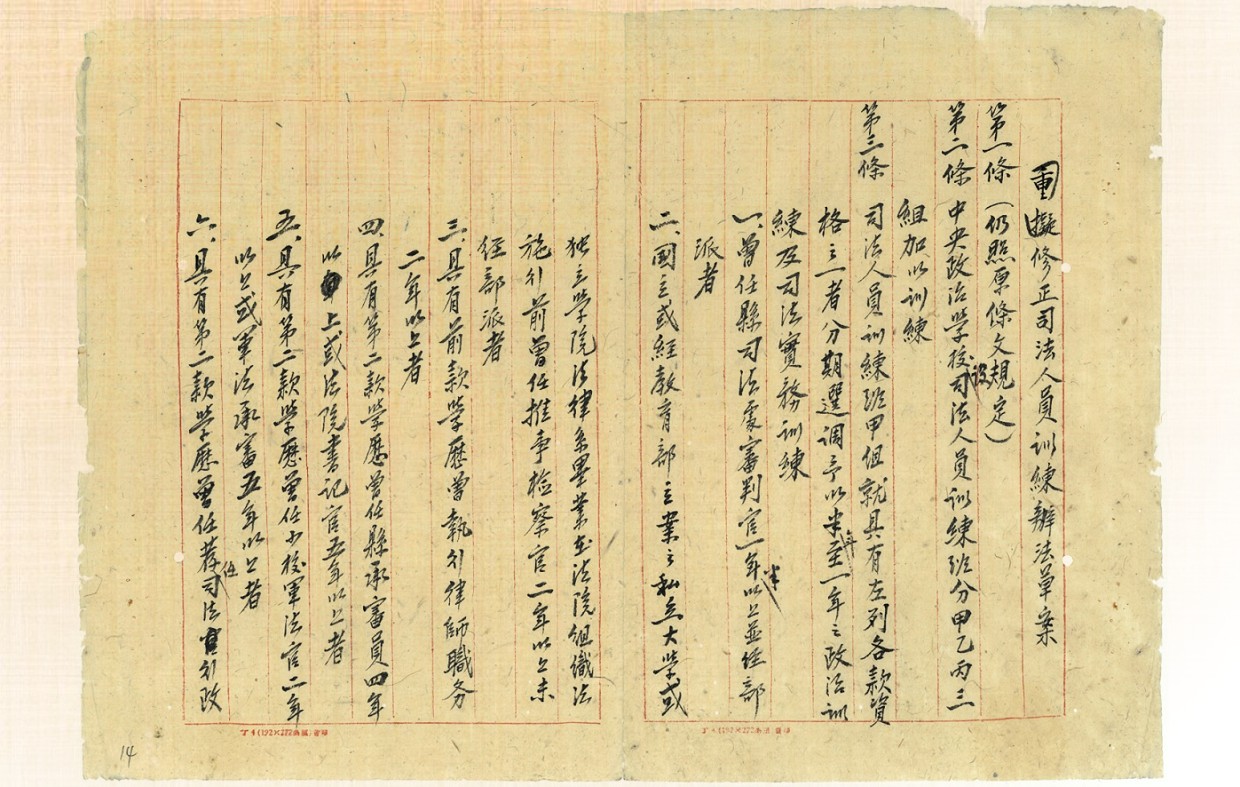 重擬修正司法人員訓練辦法草案
第一條（仍照原條文規定）
第二條 中央政治學校設司法人員訓練班分甲乙丙三
組加以訓練
第三條 司法人員訓練班甲組就具有左列各款資
格之一者分期選調予以半年至一年之政治訓
練及司法實務訓練
一、曾任縣司法處審判官一年半以上並經部
派者
二、國立或經教育部立案之私立大學或
獨立學院法律系畢業在法院組織法
施行前曾任推事檢察官二年以上未
經部派者
三、具有前款學歷曾執行律師職务
二年以上者
四、具有第二款學歷曾任縣承審員四年
以上或法院書記官五年以上者
五、具有第二款學歷曾任少校軍法官二年
以上或軍法承審五年以上者
六、具有第二款學歷曾任荐任司法行政
14